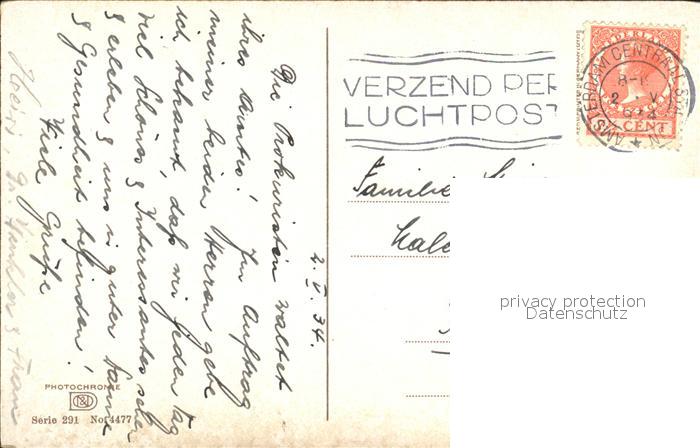 2. V. 34.
Die Prokuristin waltet
ihres Amtes! Im Auftrag
meiner beiden Herren gebe
ich bekannt, daß wir jeden Tag
viel Schönes & Interessantes sehen
& erleben & uns in guter Laune
& Gesundheit befinden!
Viele Grüße
& Frau
VERZEND PER
LUCHTPOST
AMSTERDAM CENTRAAL STA
CENT
Familie
privacy protection
Datenschutz
PHOTOCHROMIE
Serie 291 No. 4477